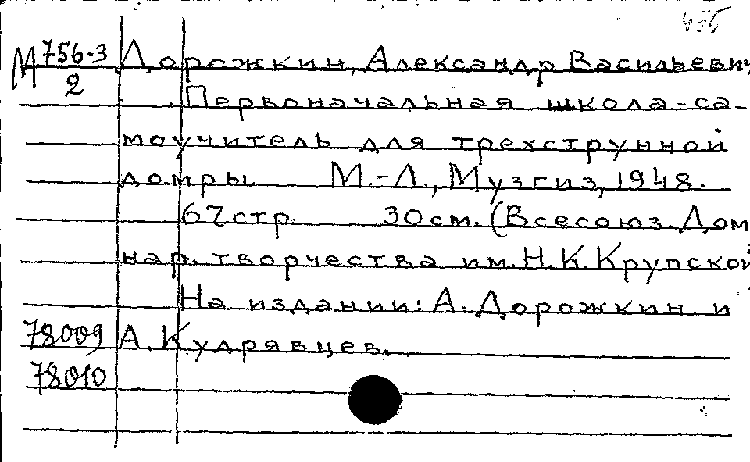 М 756-3 Дорожкин, Александр Васильевич
2 Первоначальная школа-са-
моучитель для трехструнной
домры М.-Л., Музгиз, 1948.
62 стр. 30 см. (Всесоюз. Дом
нар. творчества им. Н.К. Крупской
На издании: А. Дорожкин и
78009 А. Кудрявцев.
78010